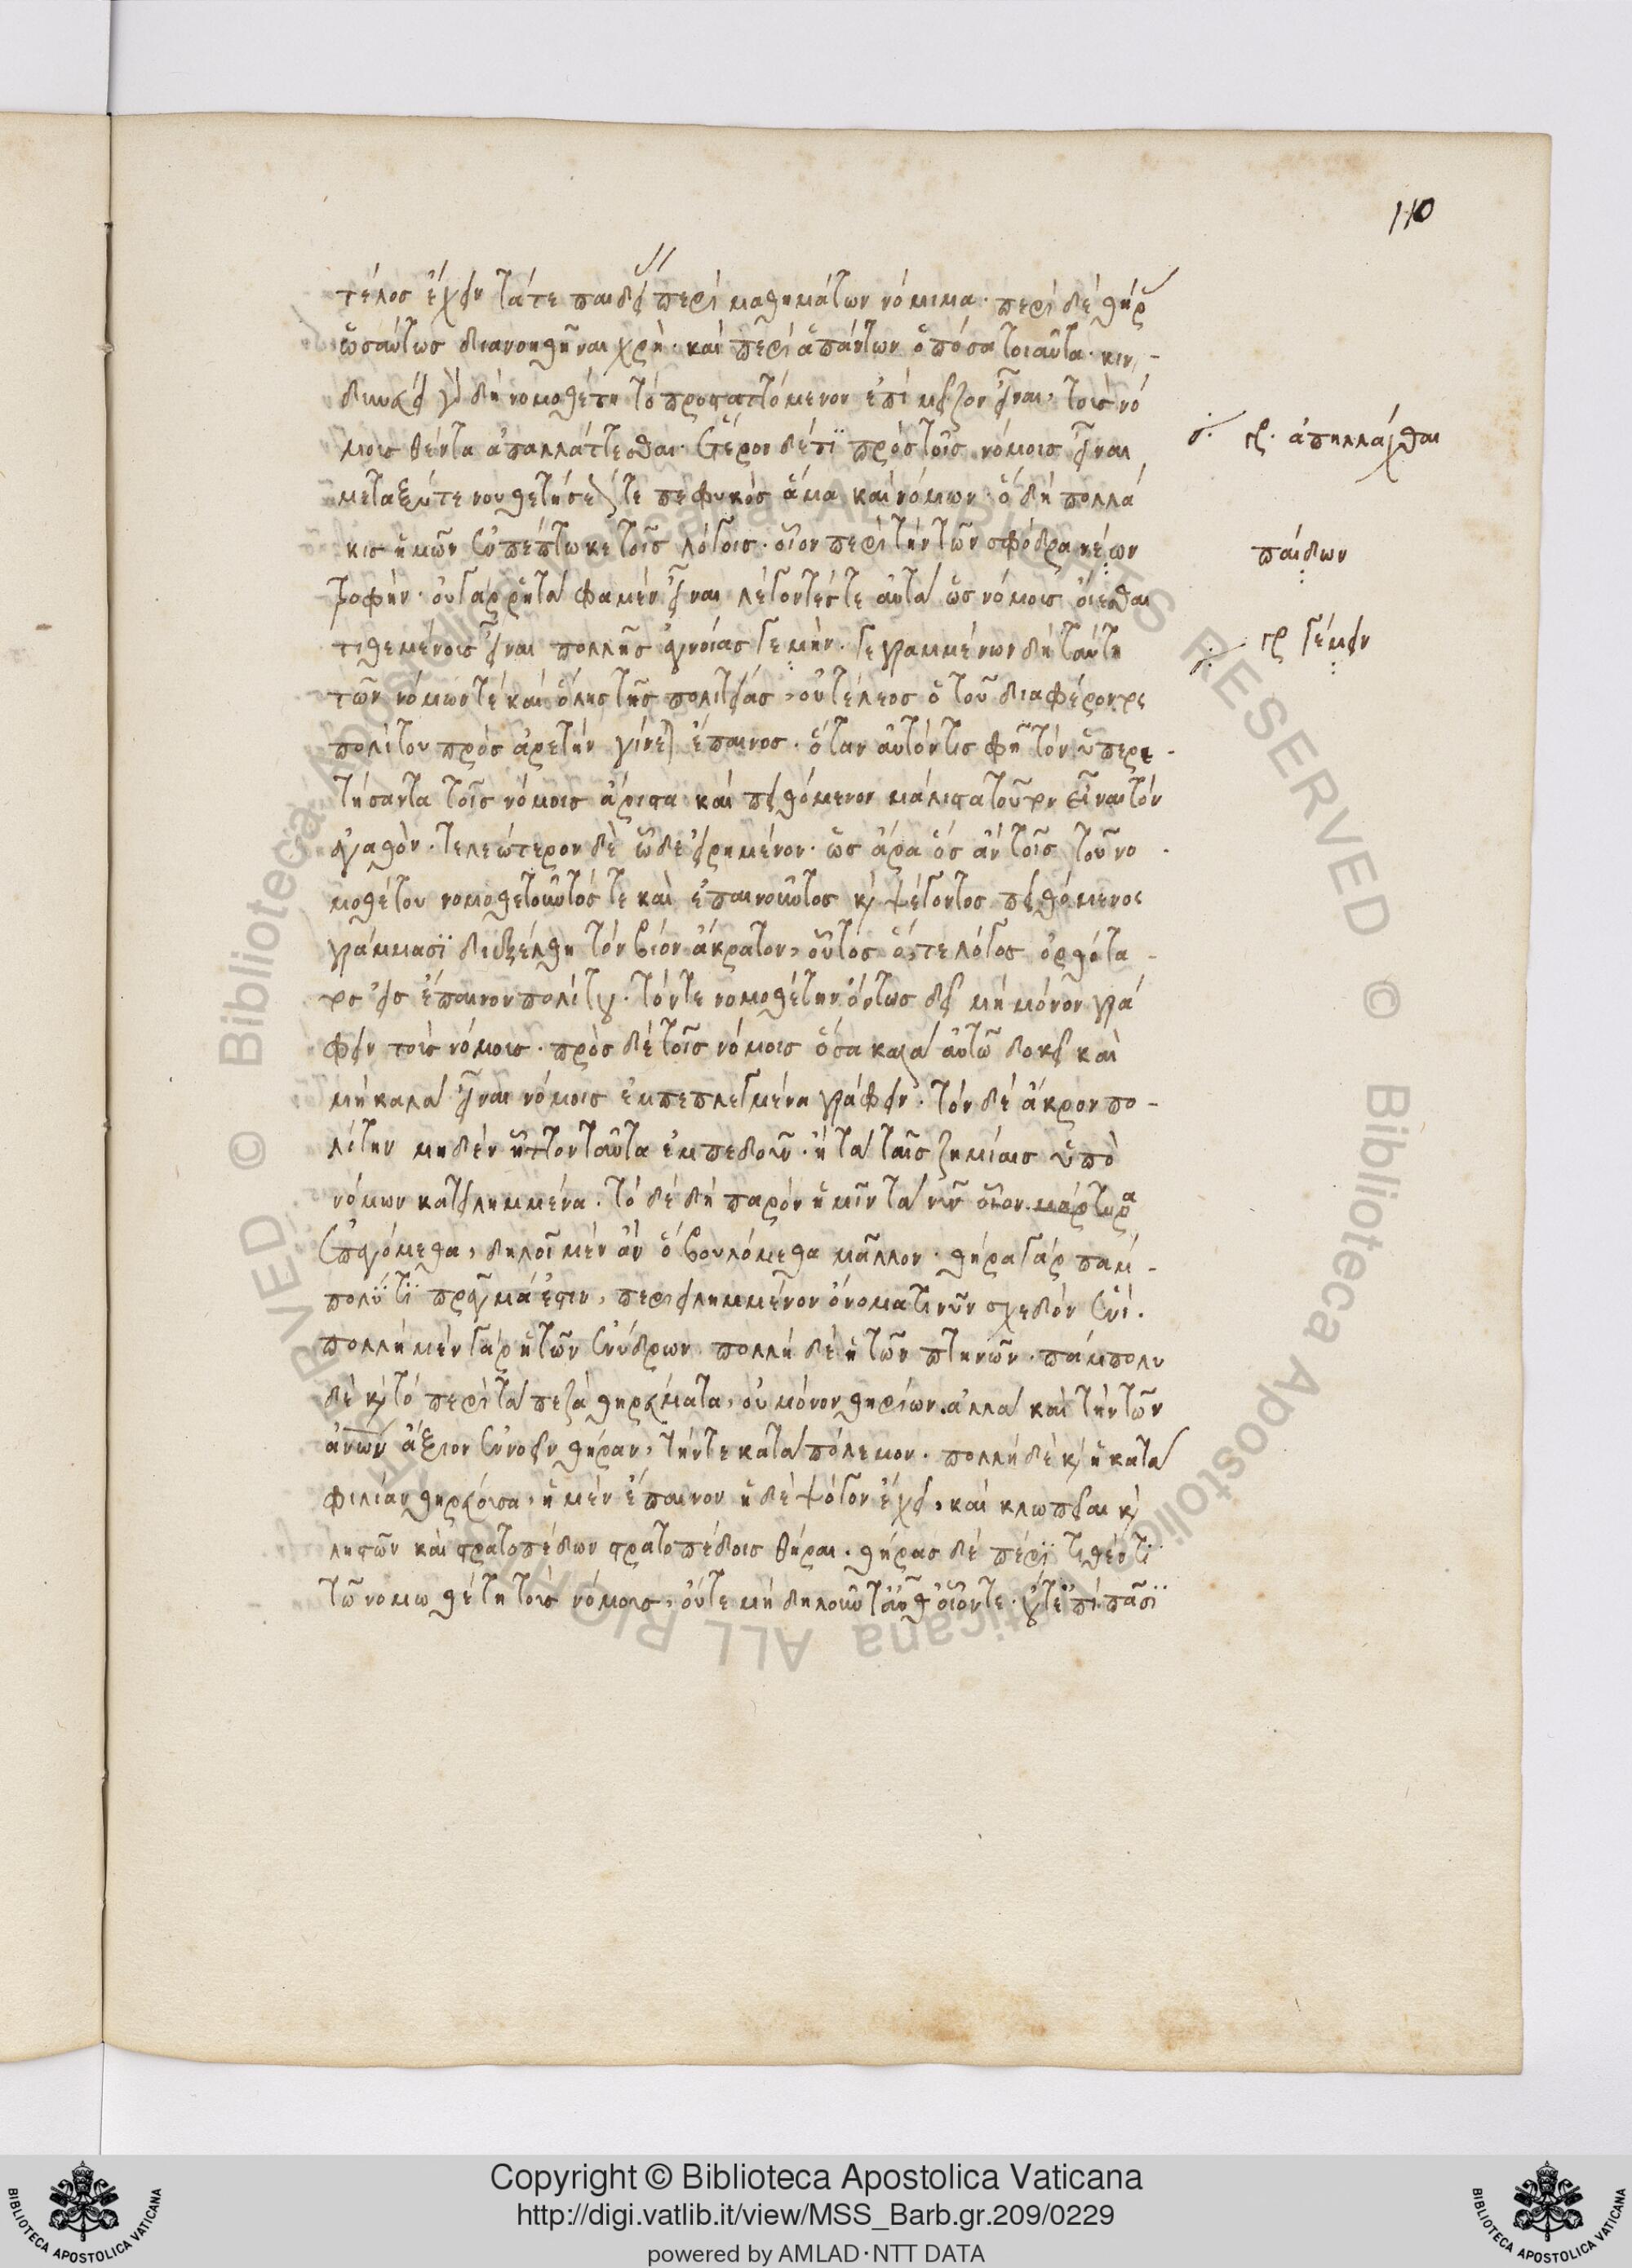 110
τέλος ἔχειν τά τε παιδείας περὶ μαθημάτων νόμιμα· περὶ δὲ θήρας
ὡσαύτως διανοηθῆναι χρὴ· καὶ περὶ ἁπάντων ὁπόσα τοιαῦτα· κιν-
δυνεύει γὰρ δὴ νομοθέτῃ τὸ προσταττόμενον ἐπὶ μεῖζον εἶναι, τοὺς νό
μους θέντα ἀπαλλάττεσθαι· ἕτερον δέ τϊ πρὸς τοῖς νόμοις εἶναι
μεταξύ τε νουθετήσεώς τε πεφυκὸς ἅμα καὶ νόμων· ὃ δὴ πολλά
κις ἡμῶν ἐμπέπτωκε τοῖς λόγοις· οἷον περὶ τὴν τῶν σφόδρα νέων
τροφήν· οὐ γὰρ ῥητά φαμεν εἶναι λέγοντές τε αὐτὰ ὡς νόμους οἴεσθαι
τιθεμένους εἶναι πολλῆς ἀνοίας γεμὴν· γεγραμμένων δὴ ταύτῃ
τῶν νόμων τὲ καὶ ὅλης τῆς πολιτείας, οὐ τέλεος ὁ τοῦ διαφέροντος
πολίτου πρὸς ἀρετὴν γίνεται ἔπαινος· ὅταν αὐτόν τις φῇ τὸν ὑπηρε-
τήσαντα τοῖς νόμοις ἄριστα καὶ πειθόμενον μάλιστα τοῦτον εἶναι τὸν
ἀγαθὸν· τελεώτερον δὲ ὧδε εἰρημένον· ὡς ἄρα ὃς ἂν τοῖς τοῦ νο-
μοθέτου νομοθετοῦντός τε καὶ ἐπαινοῦντος κ(αὶ) ψέγοντος πειθόμενος
γράμμασϊ διεξέλθῃ τὸν βίον ἄκρατον, οὗτος ὅ, τε λόγος ὀρθότα-
τος εἰς ἔπαινον πολίτου· τόν τε νομοθέτην ὄντως δεῖ μὴ μόνον γρά
φειν τοὺς νόμους· πρὸς δὲ τοῖς νόμοις ὅσα καλὰ αὐτῷ δοκεῖ καὶ
μὴ καλὰ εἶναι νόμοις ἐμπεπλεγμένα γράφειν· τὸν δὲ ἄκρον πο-
λίτην μηδὲν ἧττον ταῦτα ἐμπεδοῦν· ἢ τὰ ταῖς ζημίαις ὑπὸ
νόμων κατειλημμένα· τὸ δὲ δὴ παρὸν ἡμῖν τὰ νῦν οἷον μάρτυρα
ἐπαγόμεθα, δηλοῖμεν ἂν ὃ βουλόμεθα μᾶλλον· θήρα γὰρ πάμ-
πολύ τϊ πρᾶγμά ἐστιν, περιειλημμένον ὀνόματι νῦν σχεδὸν ἑνί·
πολλὴ μὲν γὰρ ἡ τῶν ἐνύδρων· πολλὴ δὲ ἡ τῶν πτηνῶν· πάμπολυ
δὲ κ(αὶ) τὸ περὶ τὰ πεζὰ θηρεύματα, οὐ μόνον θηρίων· ἀλλὰ καὶ τὴν τῶν
ἀνων ἄξιον ἐννοεῖν θήραν, τήν τε κατὰ πόλεμον· πολλὴ δὲ κ(αὶ) ἡ κατὰ
φιλίαν θηρεύουσα, ἡ μὲν ἔπαινον ἡ δὲ ψόγον ἔχει, καὶ κλωπεῖαι κ(αὶ)
λῃστῶν καὶ στρατοπέδων στρατοπέδοις θῆραι· θήρας δὲ πέρϊ τιθέντϊ
τῷ νομωθέτῃ τοὺς νόμους, οὔτε μὴ δηλοῦν ταῦθ' οἷόν τε· οὔτε ἐπὶ πᾶσϊ
γρ. ἀπηλλάχθαι
παίδων
γρ γέμειν
Copyright © Biblioteca Apostolica Vaticana
http://digi.vatlib.it/view/MSS_Barb.gr.209/0229
powered by AMLAD·NTT DATA